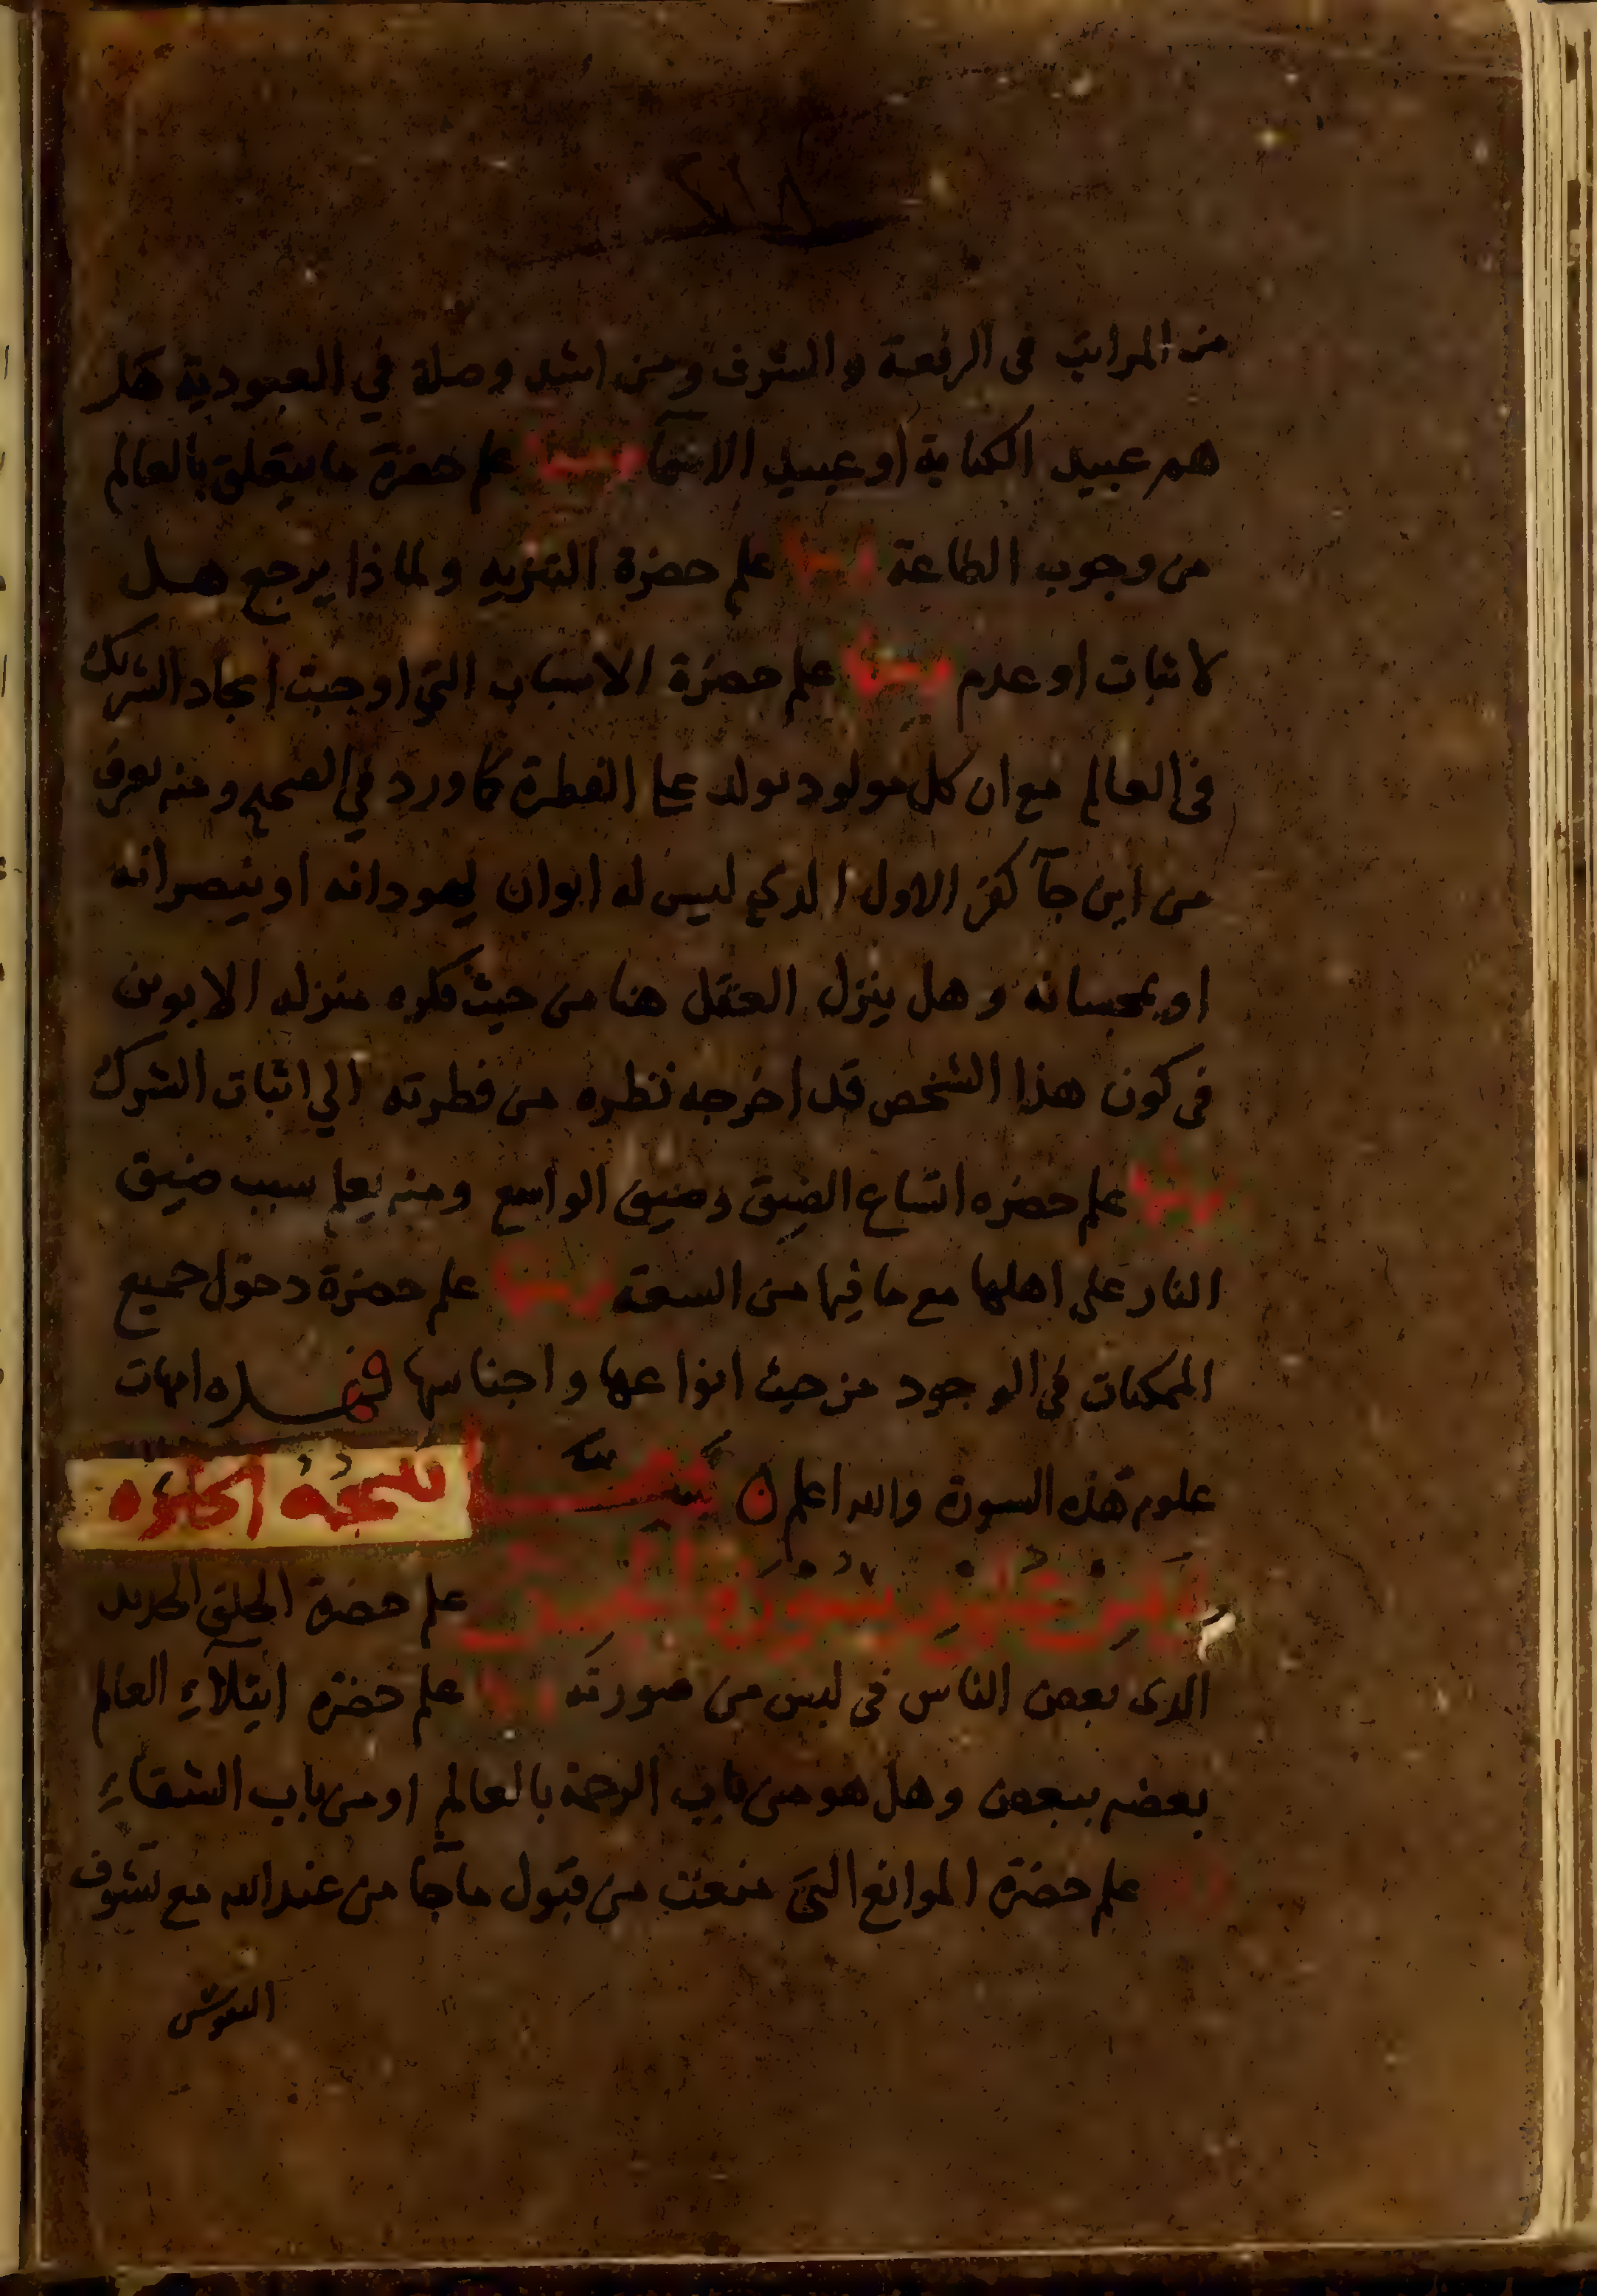 من المراتب فى الرفعة والشرف ومن اشد وصلة في العبودية هل
هم عبيد الكناية او عبيد الاسمآ ومنها علم حضرة ما يتعلق بالعالم
من وجوب الطاعة ومنها علم حضرة التنزيه ولماذا يرجع هل
لاثبات او عدم ومنها علم حضرة الاسباب التي اوجبت ايجاد الشريك
فى العالم مع ان كل مولود يولد على الفطرة كما ورد في الصحيح ومنه يعرف
من اين جآ كفر الاول الذي ليس له ابوان يهودانه او ينصرانه
او يمجسانه وهل ينزل العقل هنا من حيث فكره منزلة الابوين
فى كون هذا الشخص قد اخرجه نظره من فطرته الي اثبات الشرك
ومنها علم حضره اتساع الضيق وضيق الواسع ومنه يعلم سبب ضيق
النار على اهلها مع ما فيها من السعة ومنها علم حضرة دخول جميع
الممكنات في الوجود من حيث انواعها واجناسها فهذه امهات
علوم هذه السورة والله اعلم
علوم سورة علم حضرة الخلق الجديد
الذى بعض الناس فى لبس من صورته ومنها علم حضرة ابتلآء العالم
بعضه ببعض وهل هو من باب الرحمة بالعالم او من باب الشقاء
علم حضرة الموانع التي منعت من قبول ما جآ من عند الله مع تشوف
النفوس